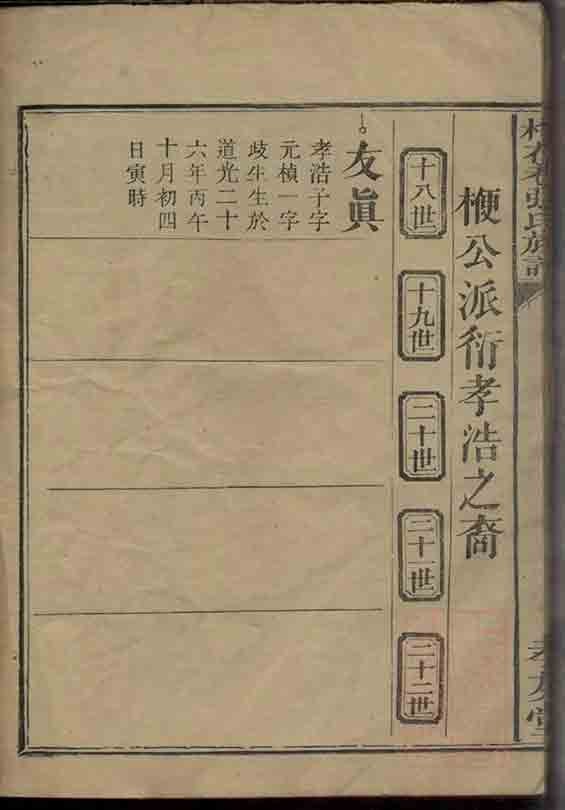 張氏族譜
孝友堂
楩公派衍孝浩之裔
十八世
十九世
二十世
二十一世
二十二世
友眞
孝浩子字
元楨一字
歧牛生於
道光二十
六年丙午
十月初四
日寅時